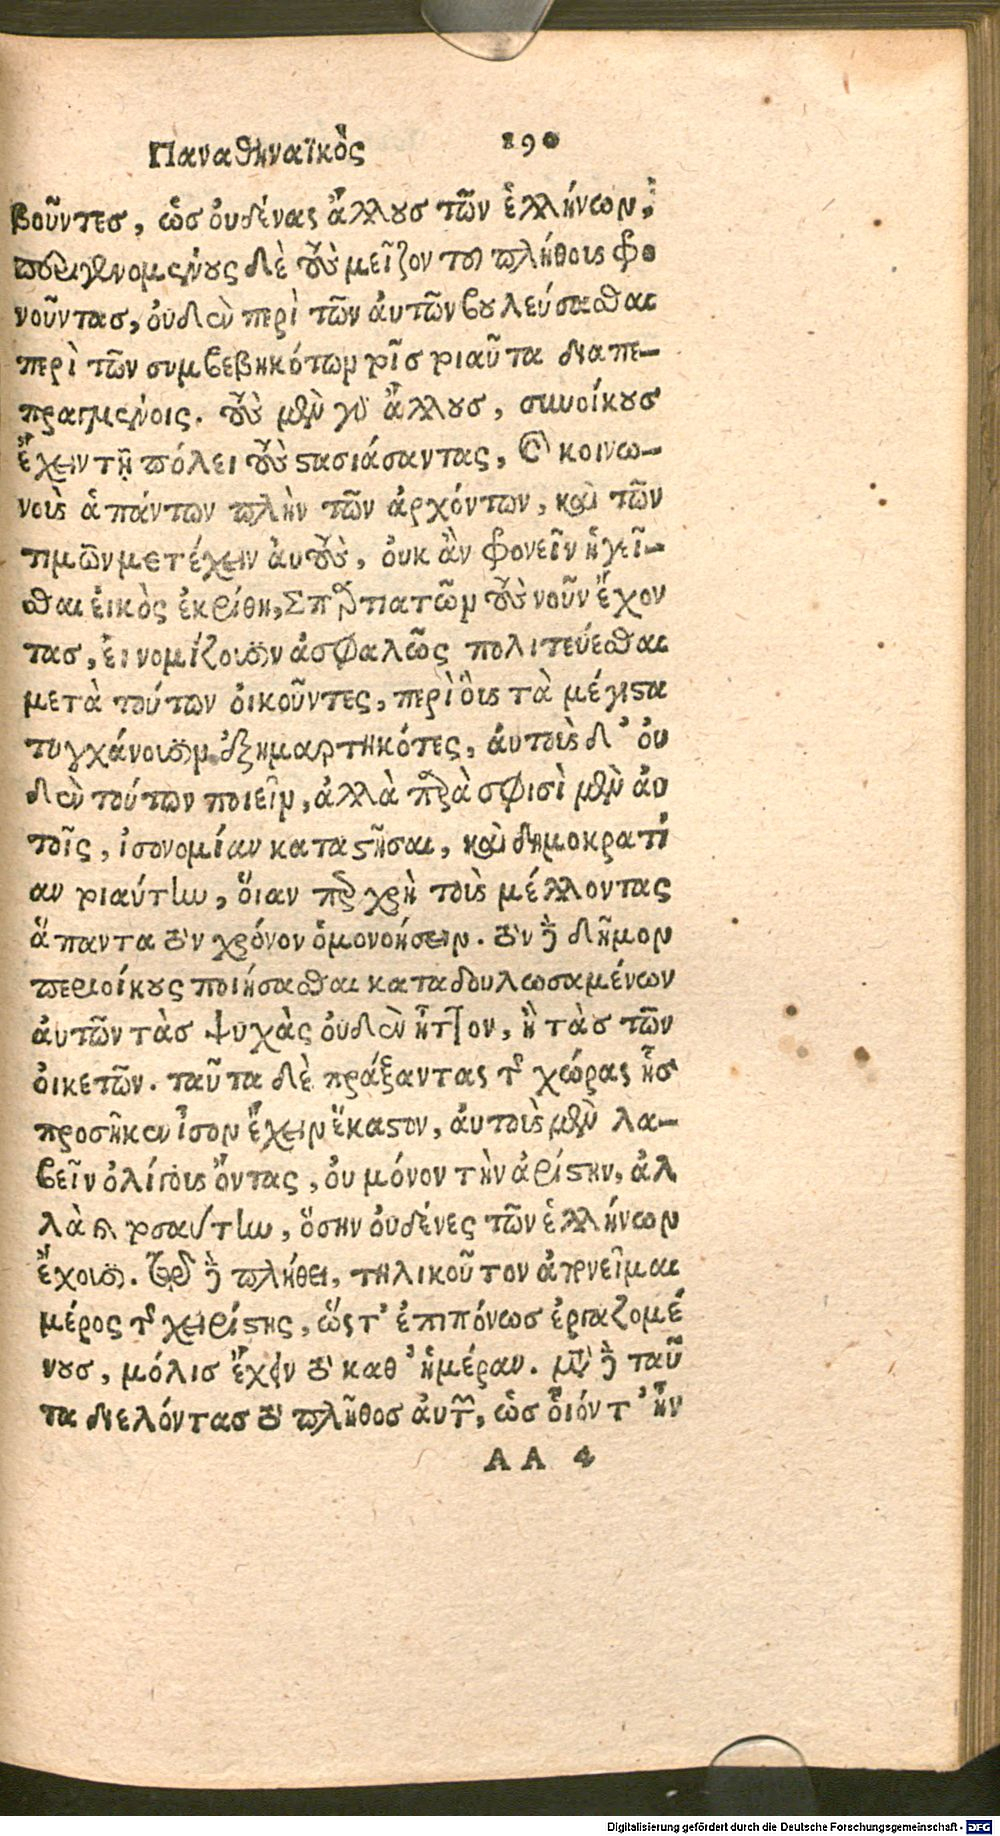 Παναθηναϊκὸς 190
βοῦντες, ὡς οὐδένας ἄλλους τῶν ἑλλήνων,
περιγενομένους δὲ τοὺς μεῖζον τοῦ πλήθους φρο
νοῦντας, οὐδὲν περὶ τῶν αὐτῶν βουλεύσασθαι
περὶ τῶν συμβεβηκότων τοῖς τοιαῦτα διαπε-
πραγμένοις. τοὺς μὲν γὰρ ἄλλους, συνοίκους
ἔχειν τῇ πόλει τοὺς στασιάσαντας, καὶ κοινω-
νοὺς ἁπάντων πλὴν τῶν ἀρχόντων, καὶ τῶν
τιμῶν μετέχειν αὐτοὺς, οὐκ ἂν φρονεῖν ἡγεῖ-
σθαι εἰκὸς ἐκρίθη, Σπαρτιατῶν τοὺς νοῦν ἔχον
τας, εἰ νομίζουσιν ἀσφαλῶς πολιτεύεσθαι
μετὰ τούτων οἰκοῦντες, περὶ οὓς τὰ μέγιστα
τυγχάνουσιν ἐξημαρτηκότες, αὐτοὺς δ’ οὐ
δὲν τούτων ποιεῖν, ἀλλὰ παρὰ σφισὶ μὲν αὑ
τοῖς, ἰσονομίαν καταστῆσαι, καὶ δημοκρατί
αν τοιαύτην, οἵαν περ χρὴ τοὺς μέλλοντας
ἅπαντα τὸν χρόνον ὁμονοήσειν. τὸν δὲ δῆμον
περιοίκους ποιήσασθαι καταδουλωσαμένων
αὐτῶν τὰς ψυχὰς οὐδὲν ἧττον, ἢ τὰς τῶν
οἰκετῶν. ταῦτα δὲ πράξαντας τῆς χώρας ἧς
προσῆκεν ἴσον ἔχειν ἕκαστον, αὐτοὺς μὲν λα-
βεῖν ὀλίγους ὄντας, οὐ μόνον τὴν ἀρίστην, ἀλ
λὰ καὶ τοσαύτην, ὅσην οὐδένες τῶν ἑλλήνων
ἔχουσι. τῷ δὲ πλήθει, τηλικοῦτον ἀπονεῖμαι
μέρος τῆς χειρίστης, ὥστ’ ἐπιπόνως ἐργαζομέ
νους, μόλις ἔχειν τὸ καθ’ ἡμέραν. μετὰ δὲ ταῦ
τα διελόντας τὸ πλῆθος αὐτῶν, ὡς οἷόντ’ ἦν
AA 4
Digitalisierung gefördert durch die Deutsche Forschungsgemeinschaft - DFG